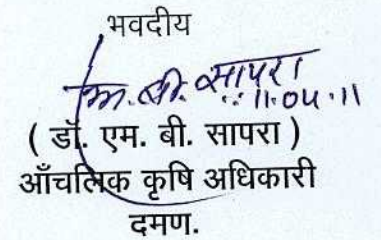 भवदीय
एम. बी. सापरा
11.04.11
( डॉ. एम. बी. सापरा )
आँचलिक कृषि अधिकारी
दमण.